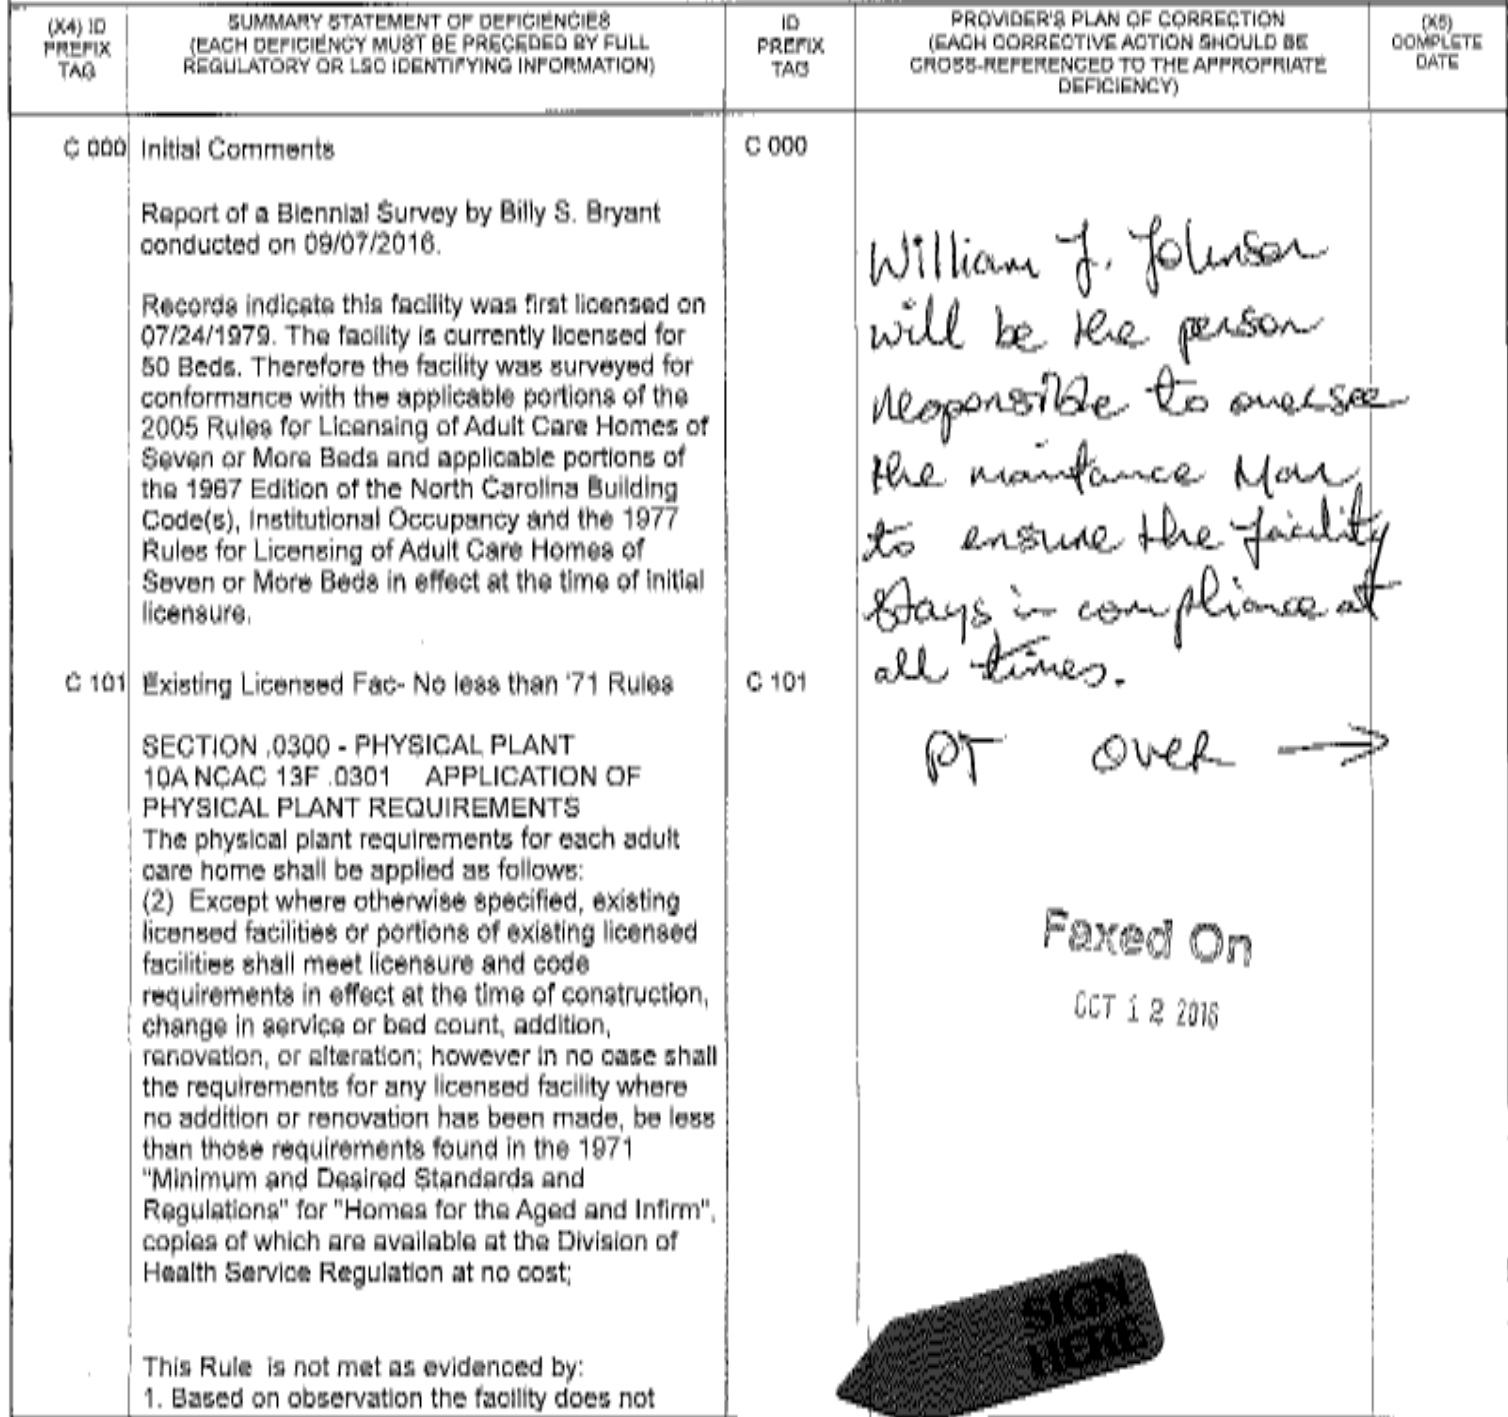 (X4) ID
PREFIX
TAG
SUMMARY STATEMENT OF DEFICIENCIES
(EACH DEFICIENCY MUST BE PRECEDED BY FULL
REGULATORY OR LSC IDENTIFYING INFORMATION)
ID
PREFIX
TAG
PROVIDER'S PLAN OF CORRECTION
(EACH CORRECTIVE ACTION SHOULD BE
CROSS-REFERENCED TO THE APPROPRIATE
DEFICIENCY)
(X5)
COMPLETE
DATE
C 000 Initial Comments
Report of a Biennial Survey by Billy S. Bryant
conducted on 09/07/2016.
Records indicate this facility was first licensed on
07/24/1979. The facility is currently licensed for
50 Beds. Therefore the facility was surveyed for
conformance with the applicable portions of the
2005 Rules for Licensing of Adult Care Homes of
Seven or More Beds and applicable portions of
the 1967 Edition of the North Carolina Building
Code(s), Institutional Occupancy and the 1977
Rules for Licensing of Adult Care Homes of
Seven or More Beds in effect at the time of initial
licensure.
C 101 Existing Licensed Fac- No less than '71 Rules
SECTION .0300 - PHYSICAL PLANT
10A NCAC 13F .0301 APPLICATION OF
PHYSICAL PLANT REQUIREMENTS
The physical plant requirements for each adult
care home shall be applied as follows:
(2) Except where otherwise specified, existing
licensed facilities or portions of existing licensed
facilities shall meet licensure and code
requirements in effect at the time of construction,
change in service or bed count, addition,
renovation, or alteration; however in no case shall
the requirements for any licensed facility where
no addition or renovation has been made, be less
than those requirements found in the 1971
"Minimum and Desired Standards and
Regulations" for "Homes for the Aged and Infirm",
copies of which are available at the Division of
Health Service Regulation at no cost;
This Rule is not met as evidenced by:
1. Based on observation the facility does not
C 000
C 101
William J. Johnson
will be the person
responsible to oversee
the maintance Man
to ensure the facility
stays in compliance at
all times.
PT over →
Faxed On
OCT 12 2016
SIGN
HERE